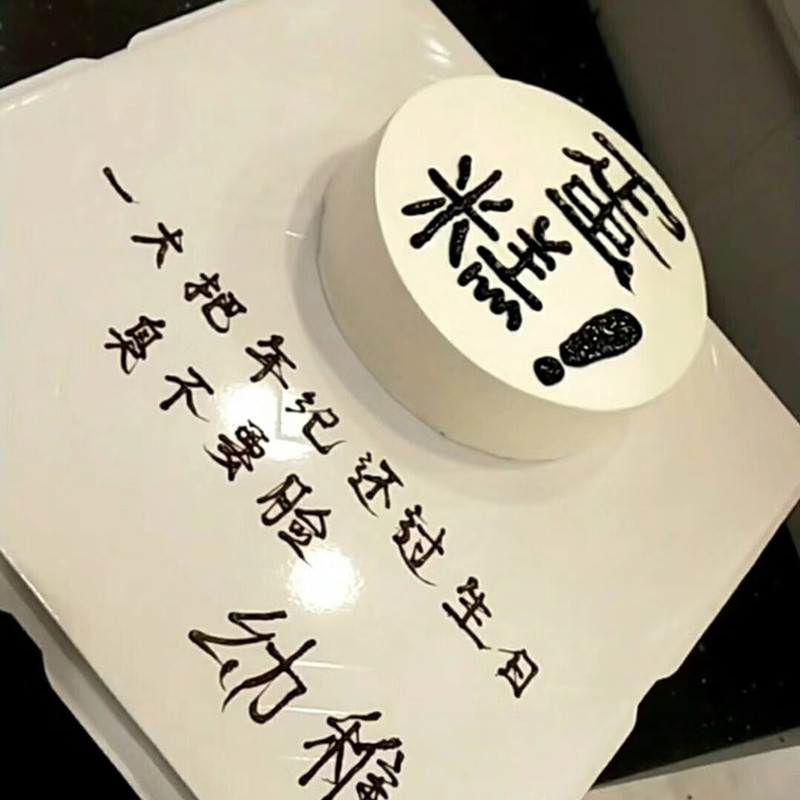 蛋
糕!
一大把年纪还过生日
臭不要脸
幼稚